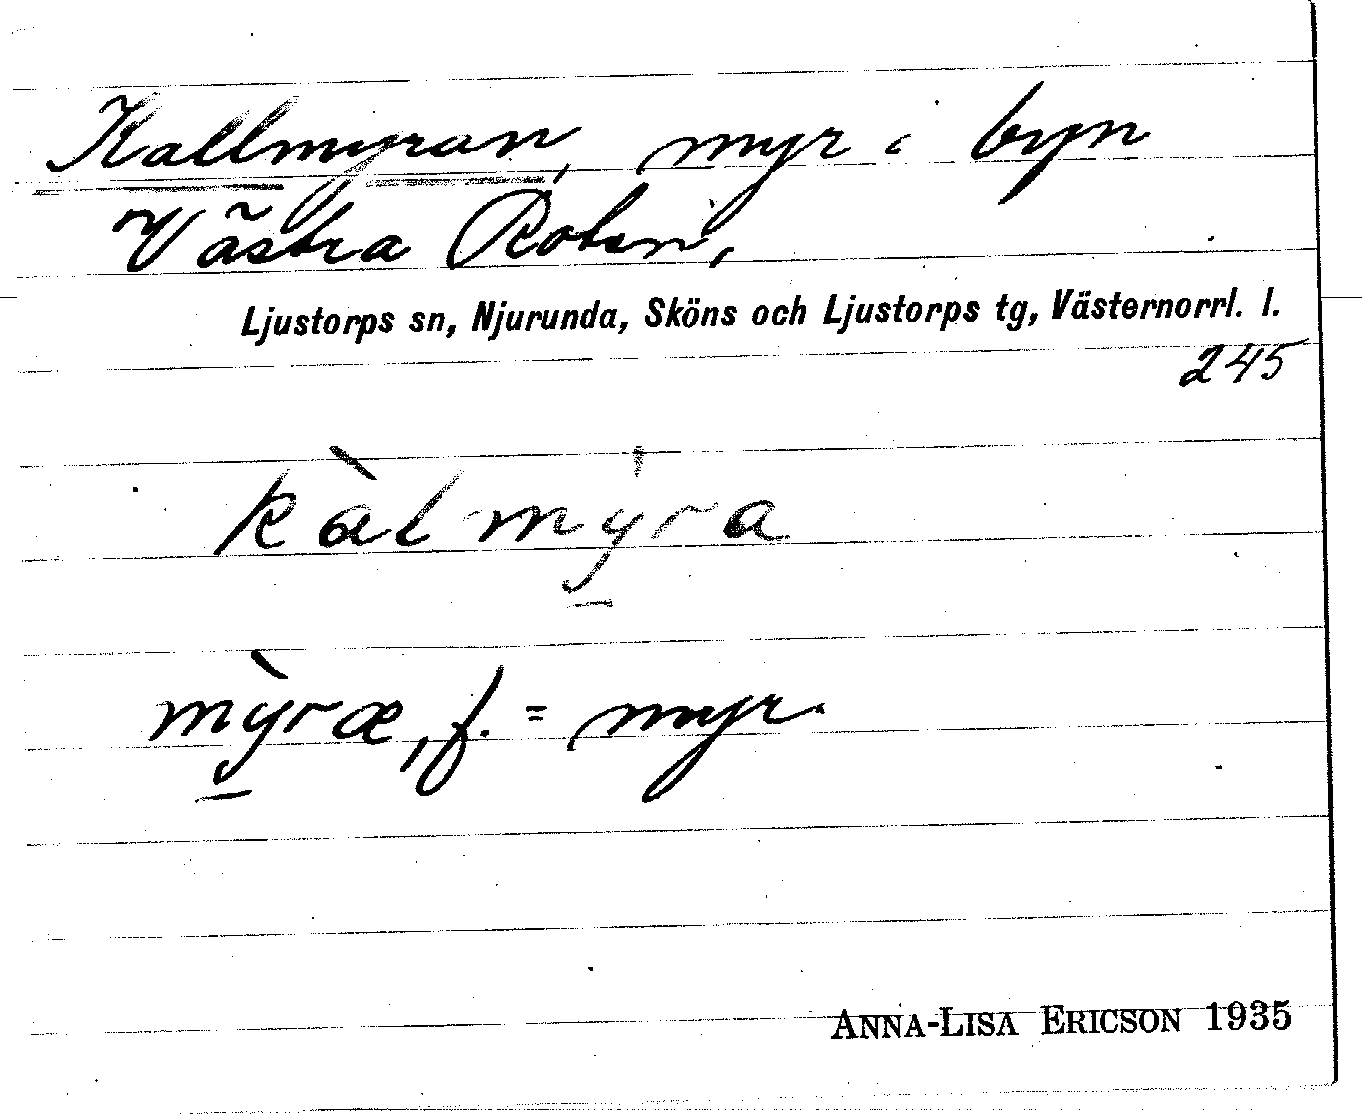 Kallmyran, myr i byn
Västra Roten,
Ljustorps sn, Njurunda, Sköns och Ljustorps tg, Västernorrl. l.
245
kàlmy̱ra
mỳ̱ræ, f. = myr.
ANNA-LISA ERICSON 1935